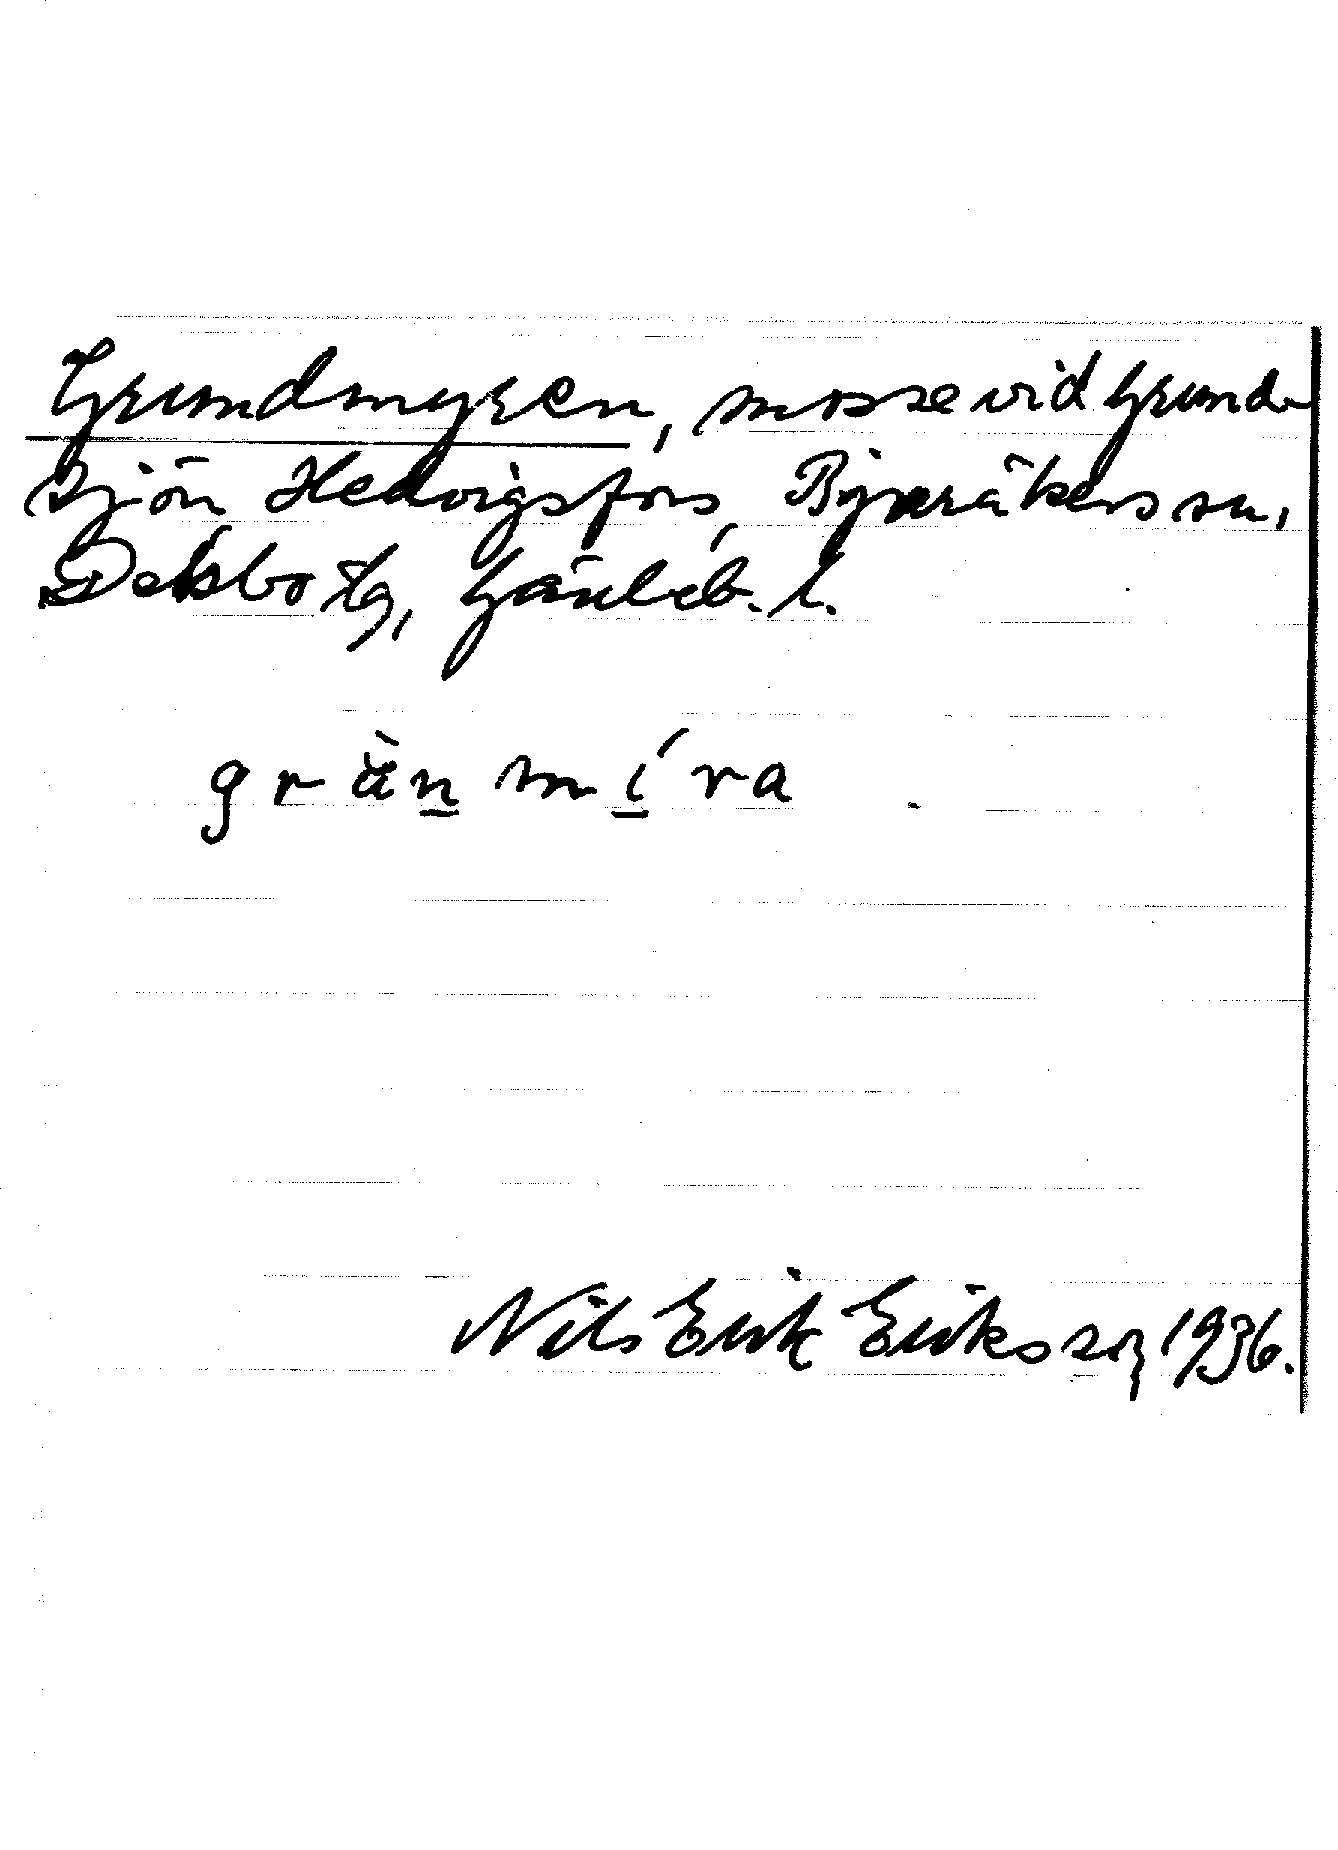 Grundmyren, mosse vid Grund-
sjön Hedvigsfors, Bjuråkers sn,
Delsbo tg, Gävleb. l.
grä̀n míra
Nils Erik Eriksson 1936.